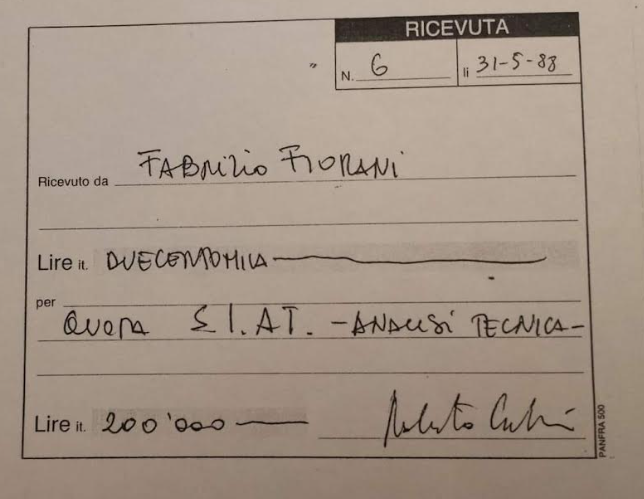 RICEVUTA
N. 6 lì 31-5-88
Ricevuto da FABRIZIO FIORANI
Lire it. DUECENTOMILA
per
QUOTA S.I.AT. - ANALISI TECNICA -
Lire it. 200'000
PANFRA 500